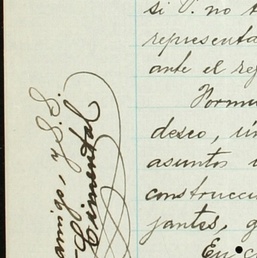 si V. no t
representa
ante el re
deseo, ún
asuntos
construcci
jantes, g
En c
amigo, y S. S.
Pimentel